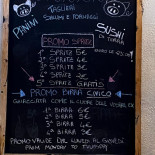 TAGLIERI
PANINI
SALUMI E FORMAGGI
SUSHI
DI TERRA
PROMO SPRITZ
1° SPRITZ 5€
2° SPRITZ 4€
3° SPRITZ 3€
4° SPRITZ 2€
5° SPRITZ GRATIS
PROMO BIRRA CIVICO
1° BIRRA 6€
2° BIRRA 5€
3° BIRRA 4€
4° BIRRA 3€
PROMO VALIDE DAL LUNEDÌ AL GIOVEDÌ
FROM MONDAY TO THURSDAY